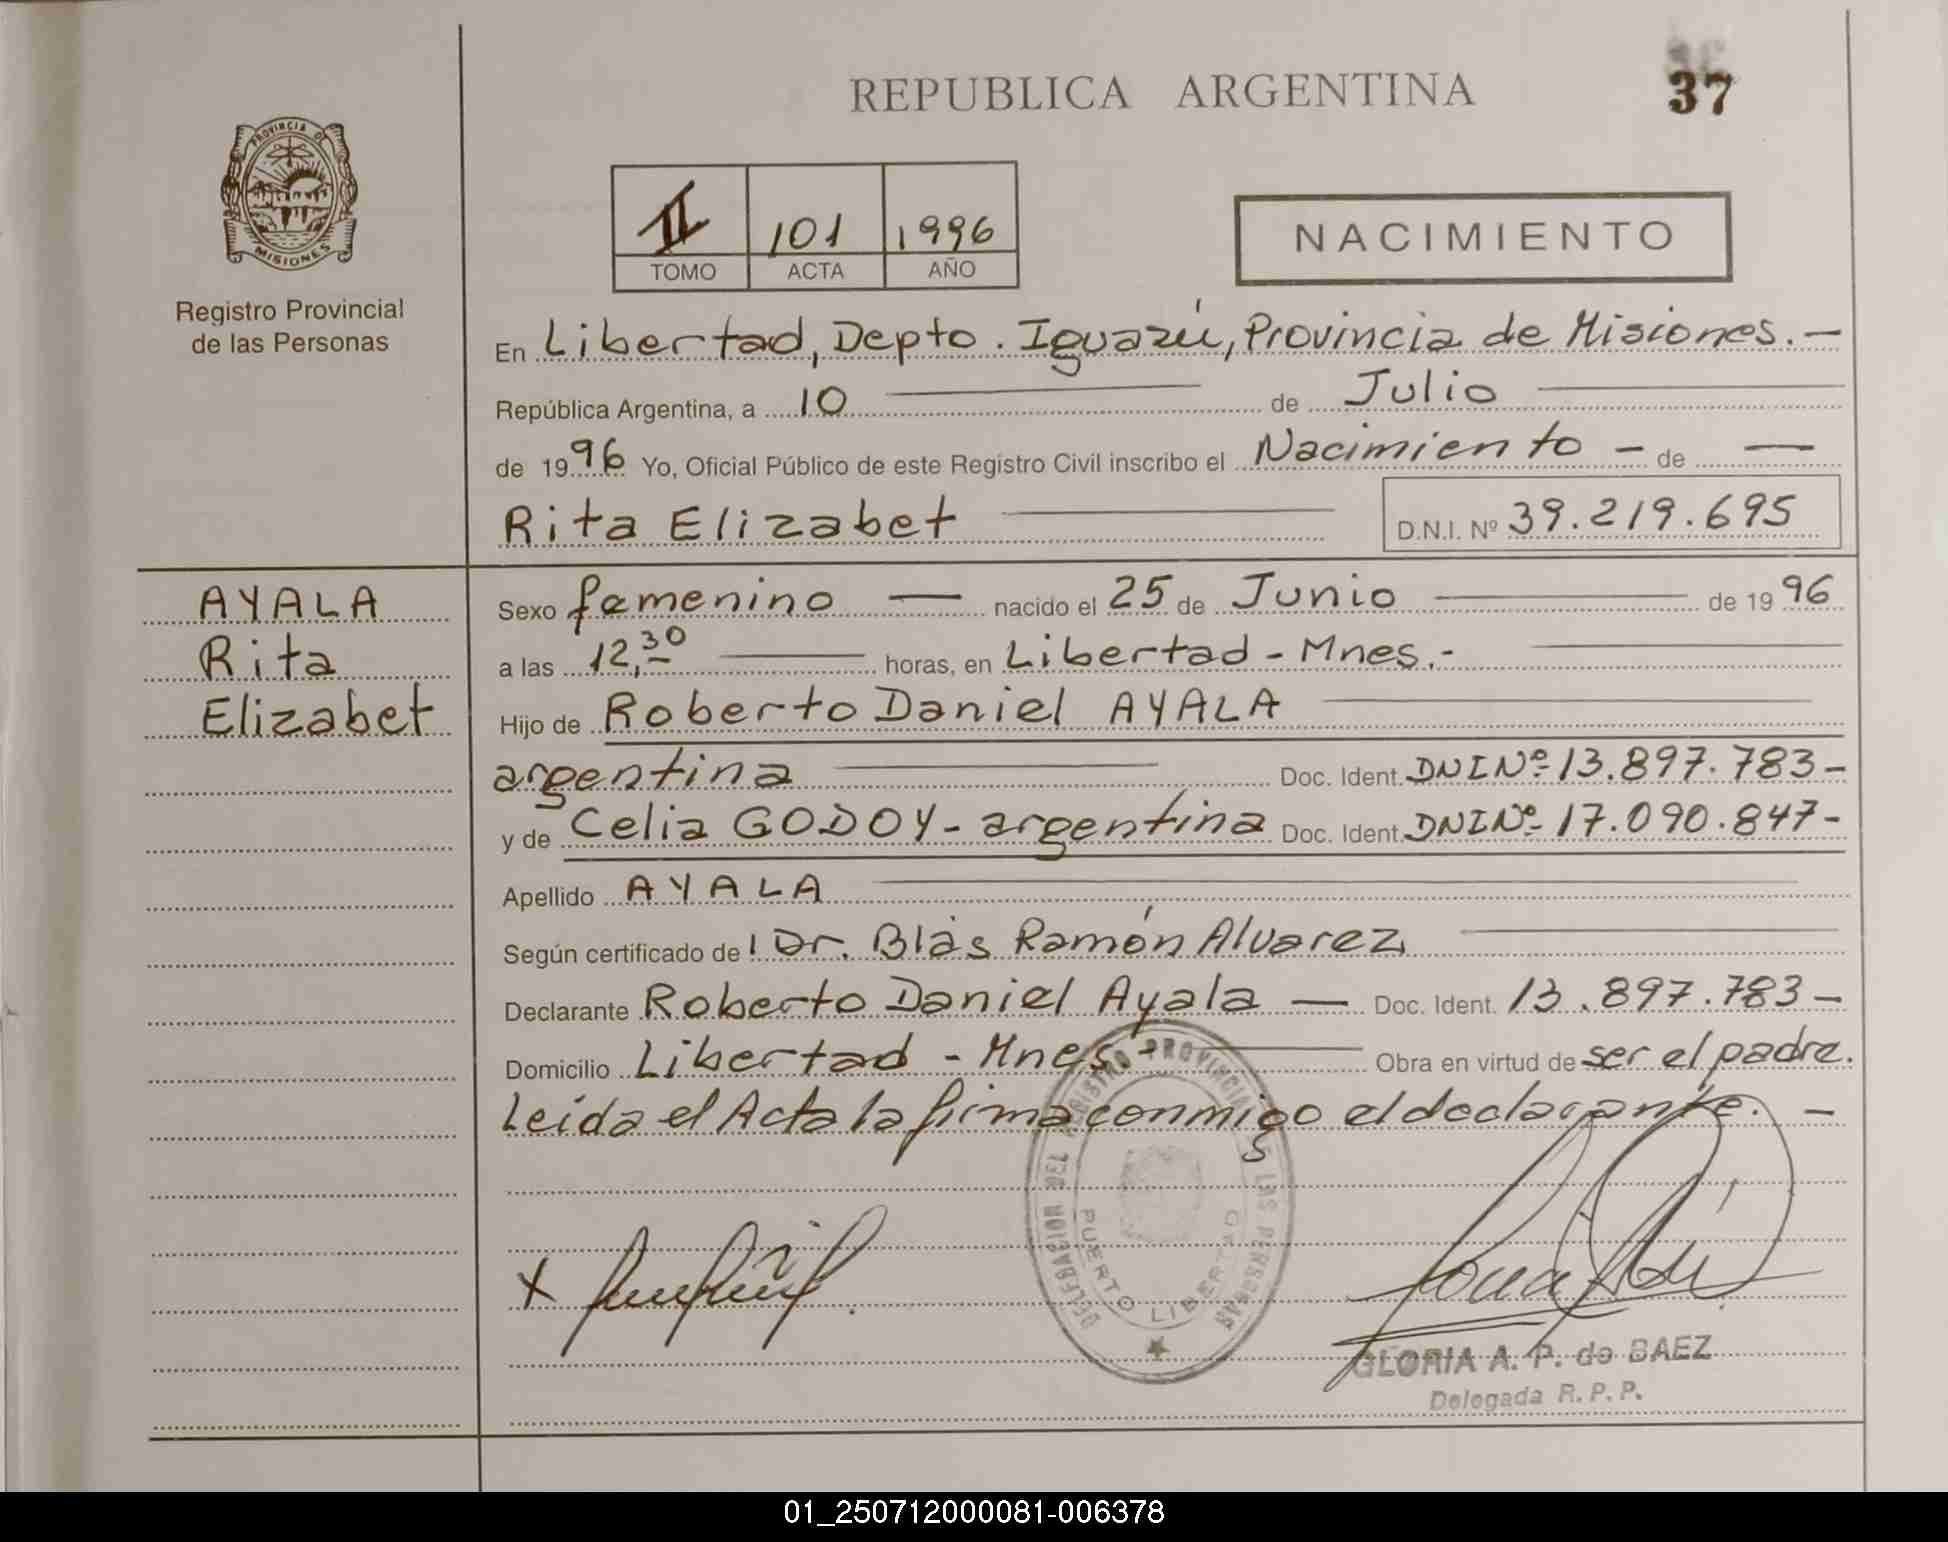 REPUBLICA ARGENTINA
37
PROVINCIA DE
MISIONES
Registro Provincial
de las Personas
II 101 1996
TOMO ACTA AÑO
NACIMIENTO
En Libertad, Depto. Iguazú, Provincia de Misiones. —
República Argentina, a 10 — de Julio —
de 1996 Yo, Oficial Público de este Registro Civil inscribo el Nacimiento — de —
Rita Elizabet — D.N.I. Nº 39.219.695
AYALA
Rita
Elizabet
Sexo femenino — nacido el 25 de Junio — de 1996
a las 12,30 — horas, en Libertad - Mnes.- —
Hijo de Roberto Daniel AYALA —
argentina — Doc. Ident. DNI Nº 13.897.783-
y de Celia GODOY - argentina Doc. Ident. DNI Nº 17.090.847-
Apellido AYALA —
Según certificado de Dr. Blás Ramón Alvarez —
Declarante Roberto Daniel Ayala — Doc. Ident. 13.897.783-
Domicilio Libertad - Mnes.- — Obra en virtud de ser el padre.
Leída el Acta la firma conmigo el declarante. —
DELEGACION DEL REGISTRO PROVINCIAL DE LAS PERSONAS
PUERTO LIBERTAD
GLORIA A. P. de BAEZ
Delegada R. P. P.
01_250712000081-006378